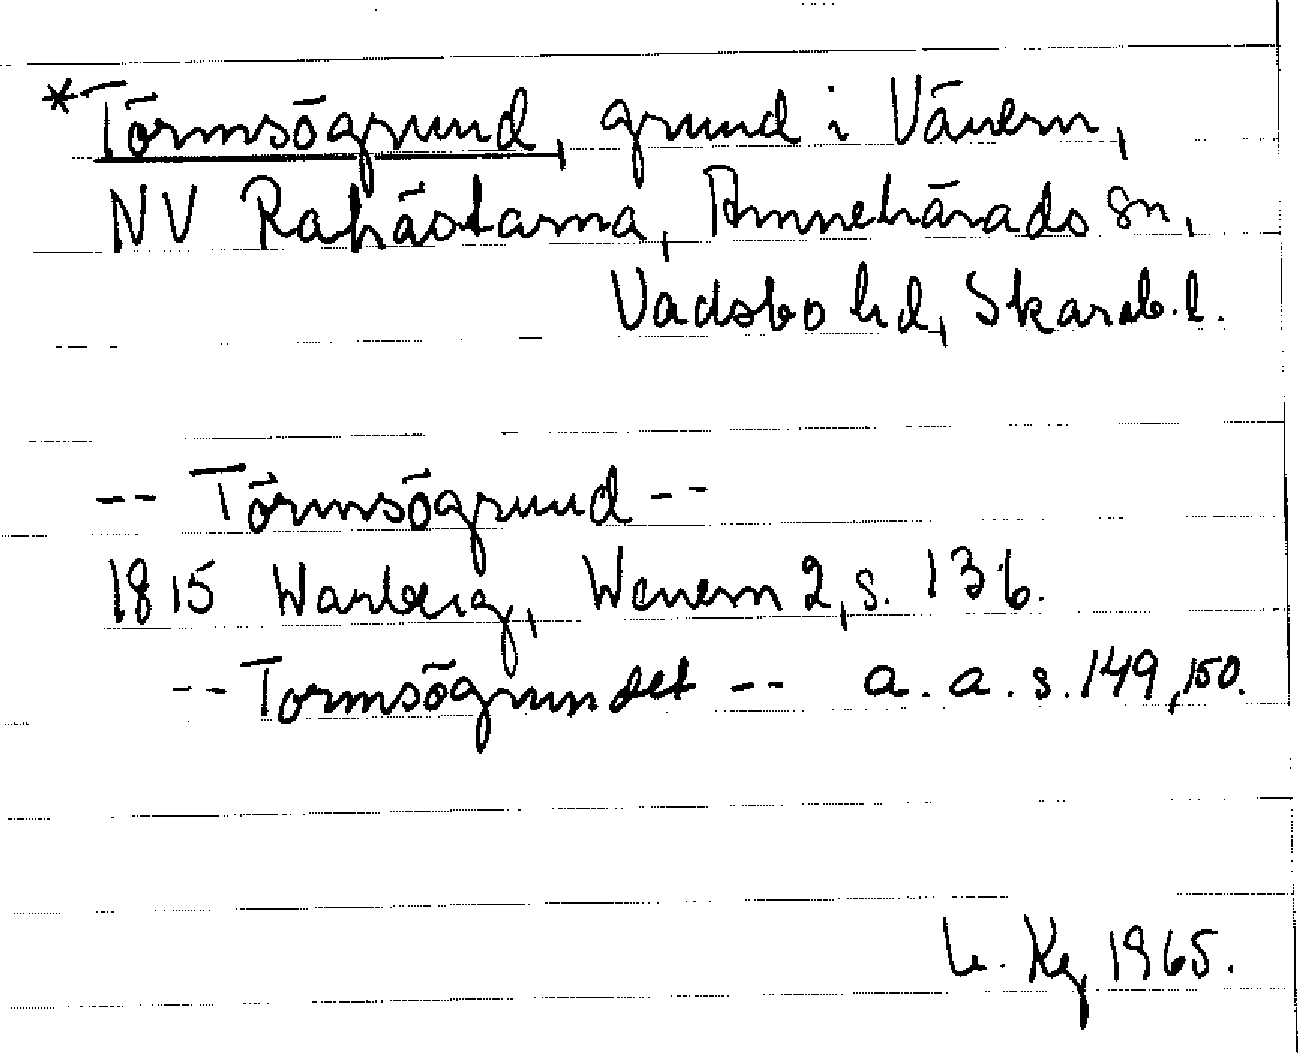 *Törmsögrund, grund i Vänern,
NV Rahästarna, Amnehärads sn,
Vadsbo hd, Skarab. l.
-- Törmsögrund --
1815 Warberg, Wenern 2, s. 136.
-- Tormsögrundet -- a. a. s. 149, 150.
Kg 1965.